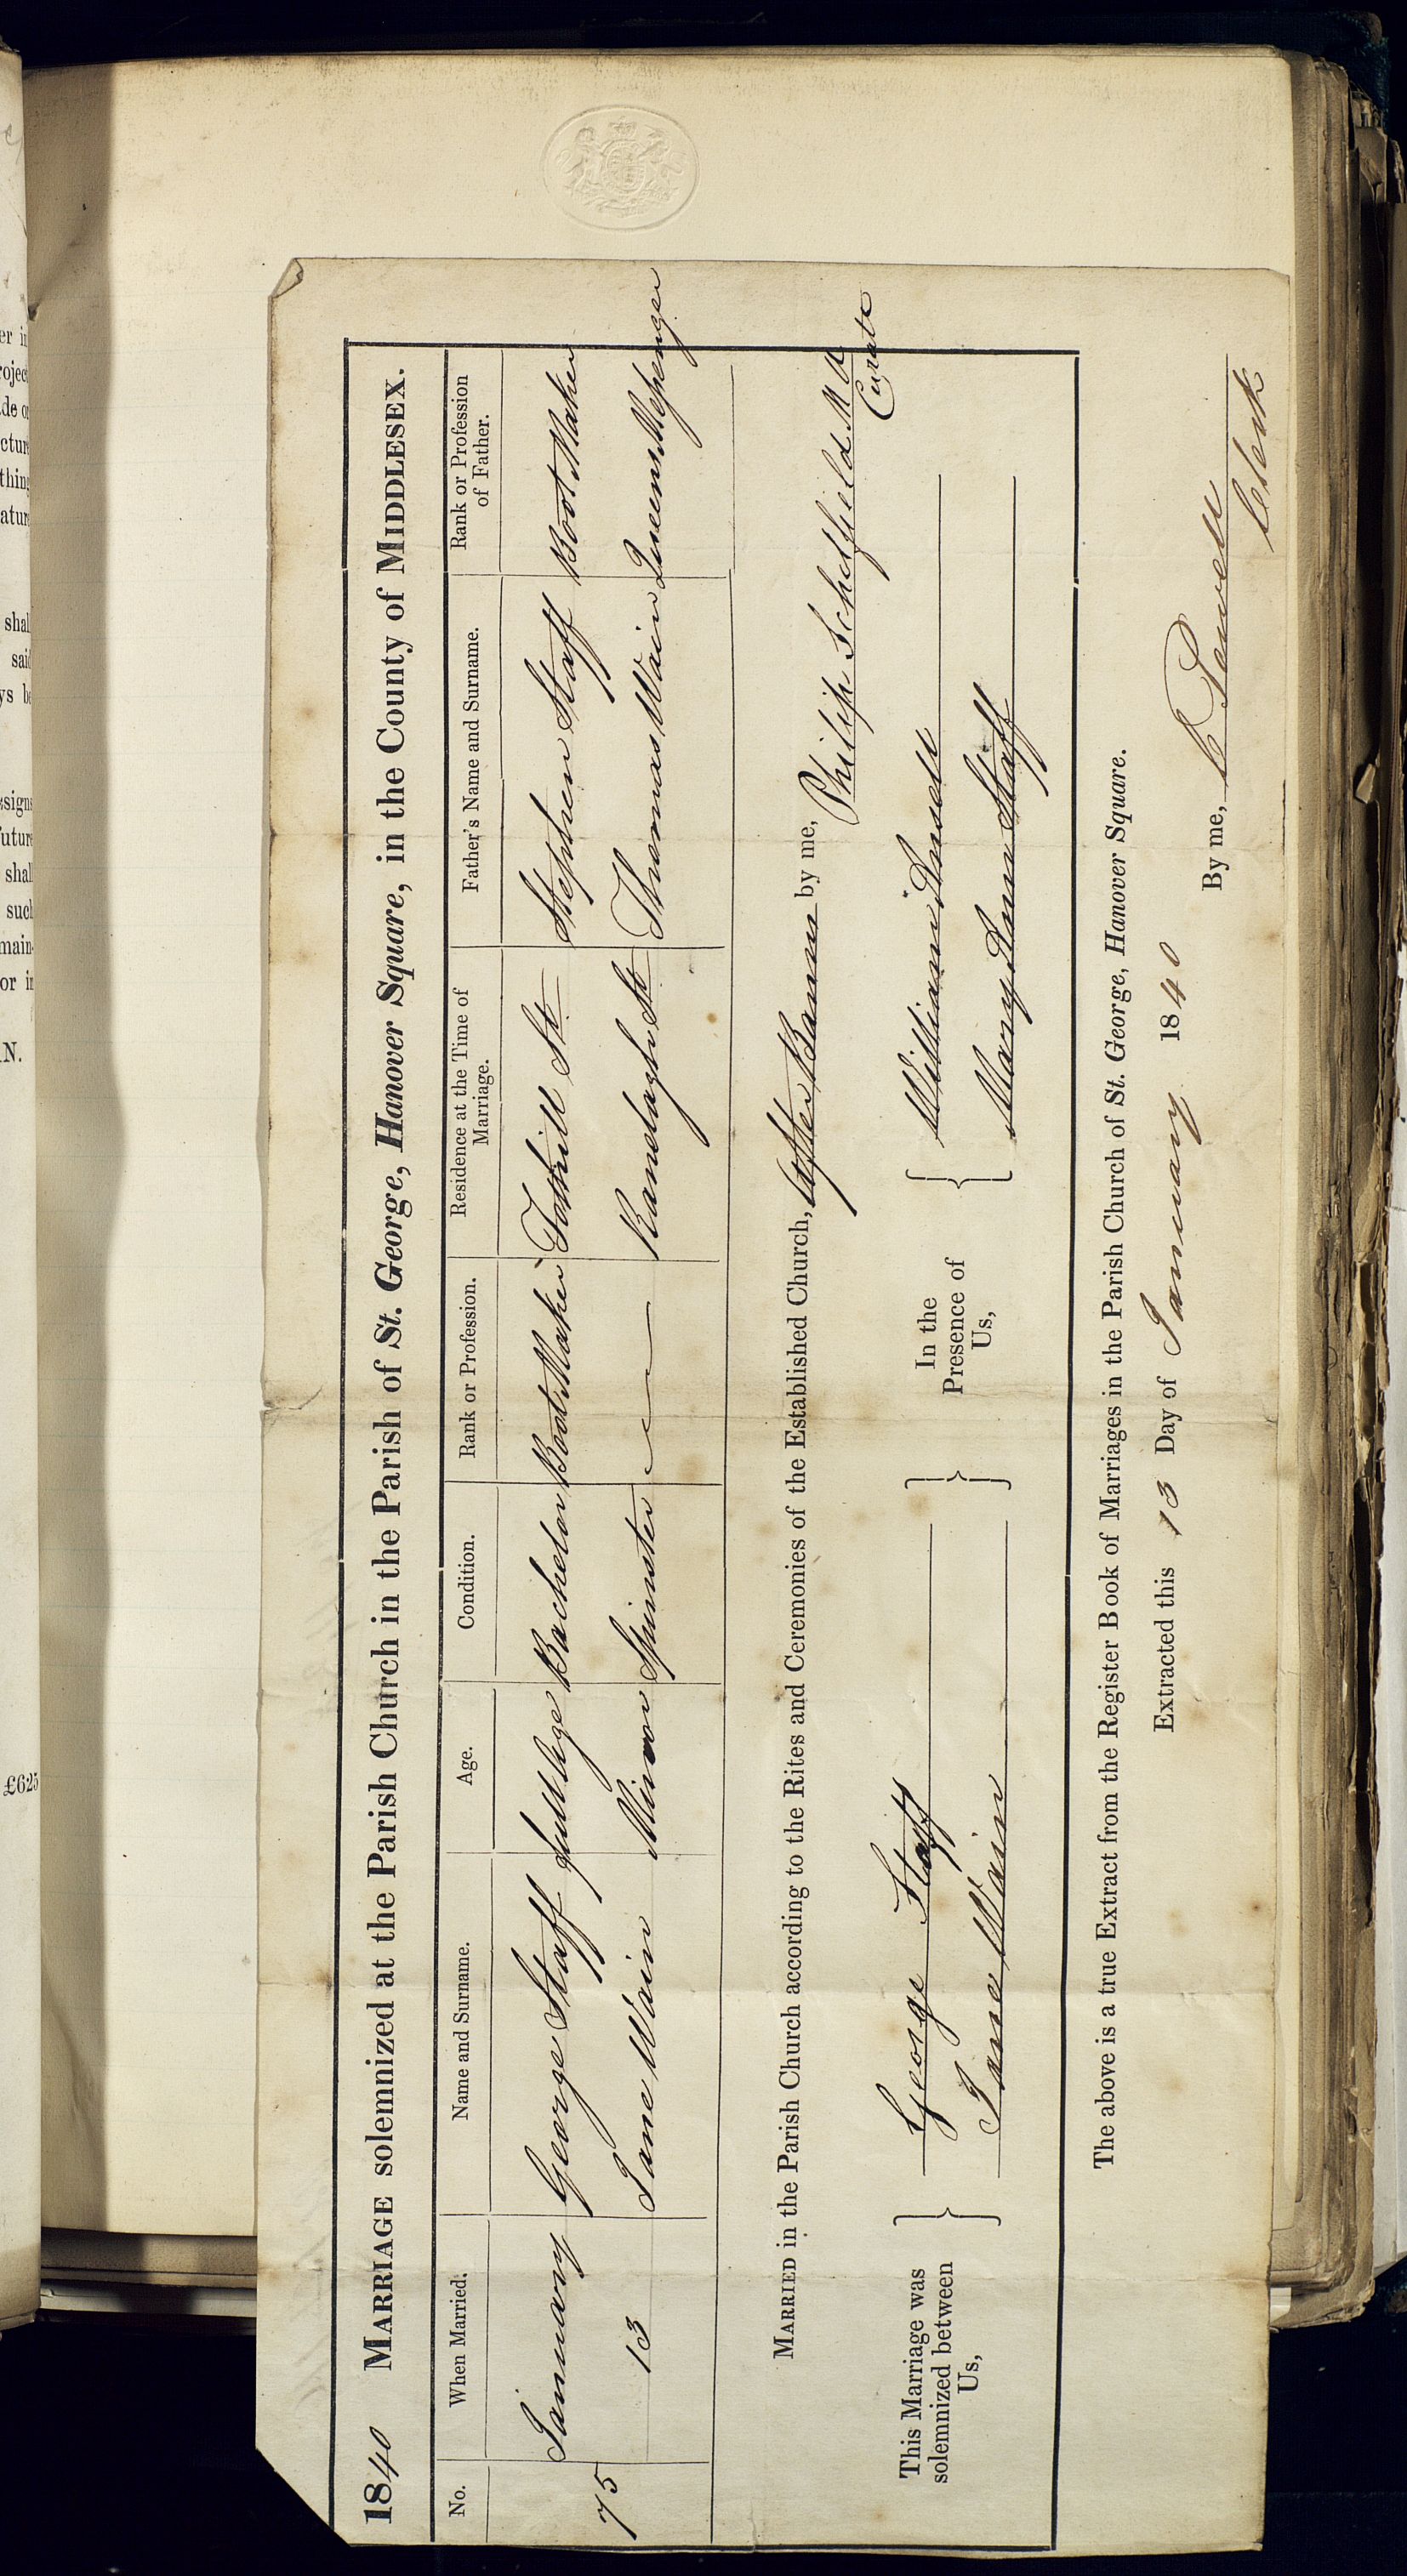 1840 MARRIAGE solemnized at the Parish Church in the Parish of St. George, Hanover Square, in the County of MIDDLESEX.
No. When Married. Name and Surname. Age. Condition. Rank or Profession. Residence at the Time of Marriage. Father's Name and Surname. Rank or Profession of Father.
75 January 13
George Staff full Age Bachelor Boot Maker Tothill St Stephen Staff Boot Maker
Jane Wain Minor Spinster Ranelagh St Thomas Wain Queens Messenger
MARRIED in the Parish Church according to the Rites and Ceremonies of the Established Church, after Banns by me, Philip Scholfield M A
Curate
This Marriage was
solemnized between
Us,
George Staff
Jane Wain
In the
Presence of
Us,
William Ansell
Mary Ann Staff
The above is a true Extract from the Register Book of Marriages in the Parish Church of St. George, Hanover Square.
Extracted this 13 Day of January 1840
By me, Clerk
er in
rojec
de o
ctur
thing
atur
shal
said
ys b
N.
esigns
uture
shal
such
main-
or in
£625